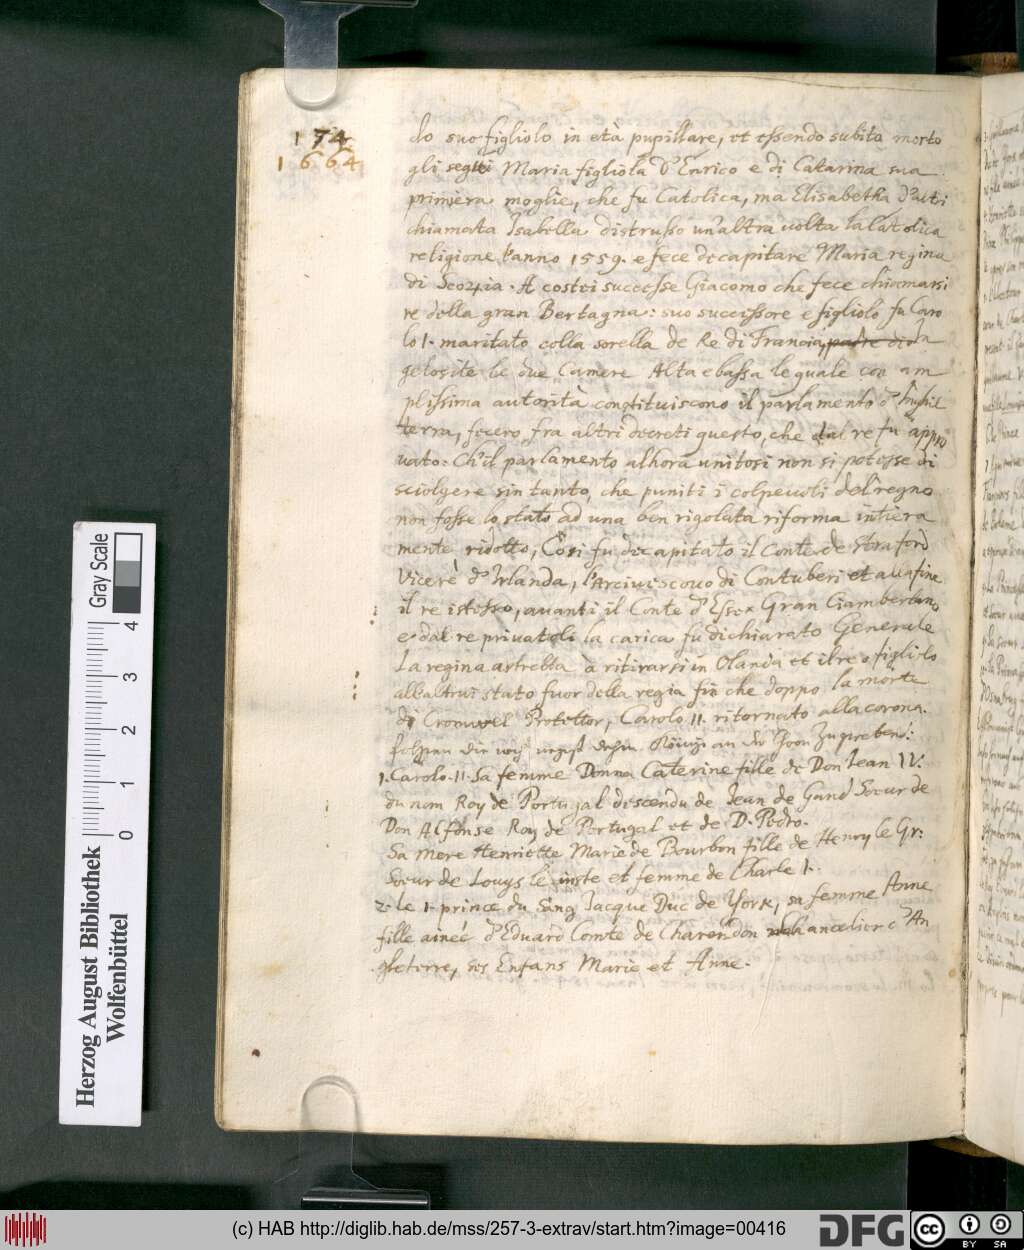 174
1664
lo suo figliolo in età pupillare, et essendo subito morto
gli seguì Maria figliola d'Enrico e di Catarina sua
primiera moglie, che fu Catolica, ma Elisabetha d'altri
chiamata Isabella distrusse un'altra volta la Catolica
religione l'anno 1559. e fece decapitare Maria regina
di Scozia. A costei successe Giacomo che fece chiamarsi
re della gran Bertagna: suo successore e figliolo fu Caro
lo I. maritato colla sorella de Re di Francia, padre di
gelosite le due Camere Alta e bassa le quale con am
plissima autorità constituiscono il parlamento d'Inghil
terra, fecero fra altri decreti questo, che dal re fu appro
vato: Ch'il parlamento alhora unitosi non si potesse di
sciolgere sin tanto, che puniti i colpevoli del regno
non fosse lo stato ad una ben rigolata riforma intiera
mente ridotto, Cosi fu decapitato il Conte de Straford
Vicerè d'Irlanda, l'Arciviscovo di Contuberi et alla fine
il re istesso, avanti il Conte d'Essex Gran Ciamberlano
e dal re privatoli la carica fu dichiarato Generale
La regina astretta à ritirarsi in Olanda et il re figliolo
all'altrui stato fuor della regia fin che doppo la morte
di Cromwel Protettor, Carolo II. ritornato alla corona.
1. Carolo. II. Sa femme Donna Caterine fille de Don Jean IV.
du nom Roy de Portugal descendu de Jean de Gand Soeur de
Don Alfonse Roy de Portugal et de D. Pedro.
Sa Mere Henriette Marie de Bourbon fille de Henry le Gr:
Soeur de Louys le juste et femme de Charle I.
2. le I. prince du Sang Jacque Duc de York, sa femme Anne
fille ainée d'Eduard Comte de Charendon Chancelier d'An
gleterre, ses Enfans Marie et Anne.
Herzog August Bibliothek
Wolfenbüttel
Gray Scale
0 1 2 3 4
(c) HAB http://diglib.hab.de/mss/257-3-extrav/start.htm?image=00416
DFG
cc BY SA